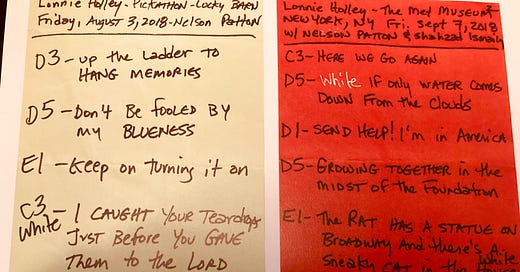 Lonnie Holley - PICKATHON - Lucky BARN
Friday, August 3, 2018 - Nelson Patton
D3 - up the Ladder to
HANG MEMORIES
D5 - Don't Be FOOLED By
my BLUENESS
E1 - Keep on turning it on
C3 - I CAUGHT YOUR Teardrops
White
JUST BeFore You GAVE
Them to the LORD
Lonnie Holley - The Met Museum
NEW YORK, NY Fri. Sept 7, 2018
W/ NELSON PATTON & Shahzad Ismaily
C3 - HERE WE GO AGAIN
D5 - White IF only WATER COMES
DOWN From the Clouds
D1 - SEND HELP! I'm in America
D5 - GROWING TOGETHER in the
miDST of the Foundation
E1 - The RAT HAS A STATUE on
BROADWAY And there's A
White
Sneaky CAT in the House